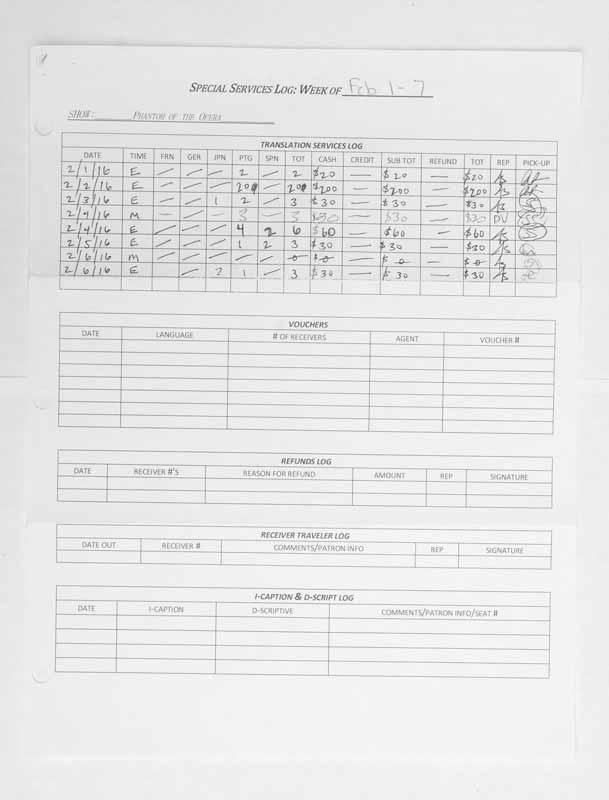 SPECIAL SERVICES LOG: WEEK OF Feb 1-7
SHOW: PHANTOM OF THE OPERA
TRANSLATION SERVICES LOG
DATE TIME FRN GER JPN PTG SPN TOT CASH CREDIT SUB TOT REFUND TOT REP PICK-UP
2/1/16 E — — — 2 — 2 $20 — $20 — $20
2/2/16 E — — — 20 — 20 $200 — $200 — $200
2/3/16 E — — 1 2 — 3 $30 — $30 — $30
2/4/16 M — — — 3 — 3 $30 — $30 — $30 DV
2/4/16 E — — — 4 2 6 $60 — $60 — $60
2/5/16 E — — — 1 2 3 $30 — $30 — $30
2/6/16 M — — — — — 0 $0 — $0 — $0
2/6/16 E — 2 1 — 3 $30 — $30 — $30
VOUCHERS
DATE LANGUAGE # OF RECEIVERS AGENT VOUCHER #
REFUNDS LOG
DATE RECEIVER #'S REASON FOR REFUND AMOUNT REP SIGNATURE
RECEIVER TRAVELER LOG
DATE OUT RECEIVER # COMMENTS/PATRON INFO REP SIGNATURE
I-CAPTION & D-SCRIPT LOG
DATE I-CAPTION D-SCRIPTIVE COMMENTS/PATRON INFO/SEAT #